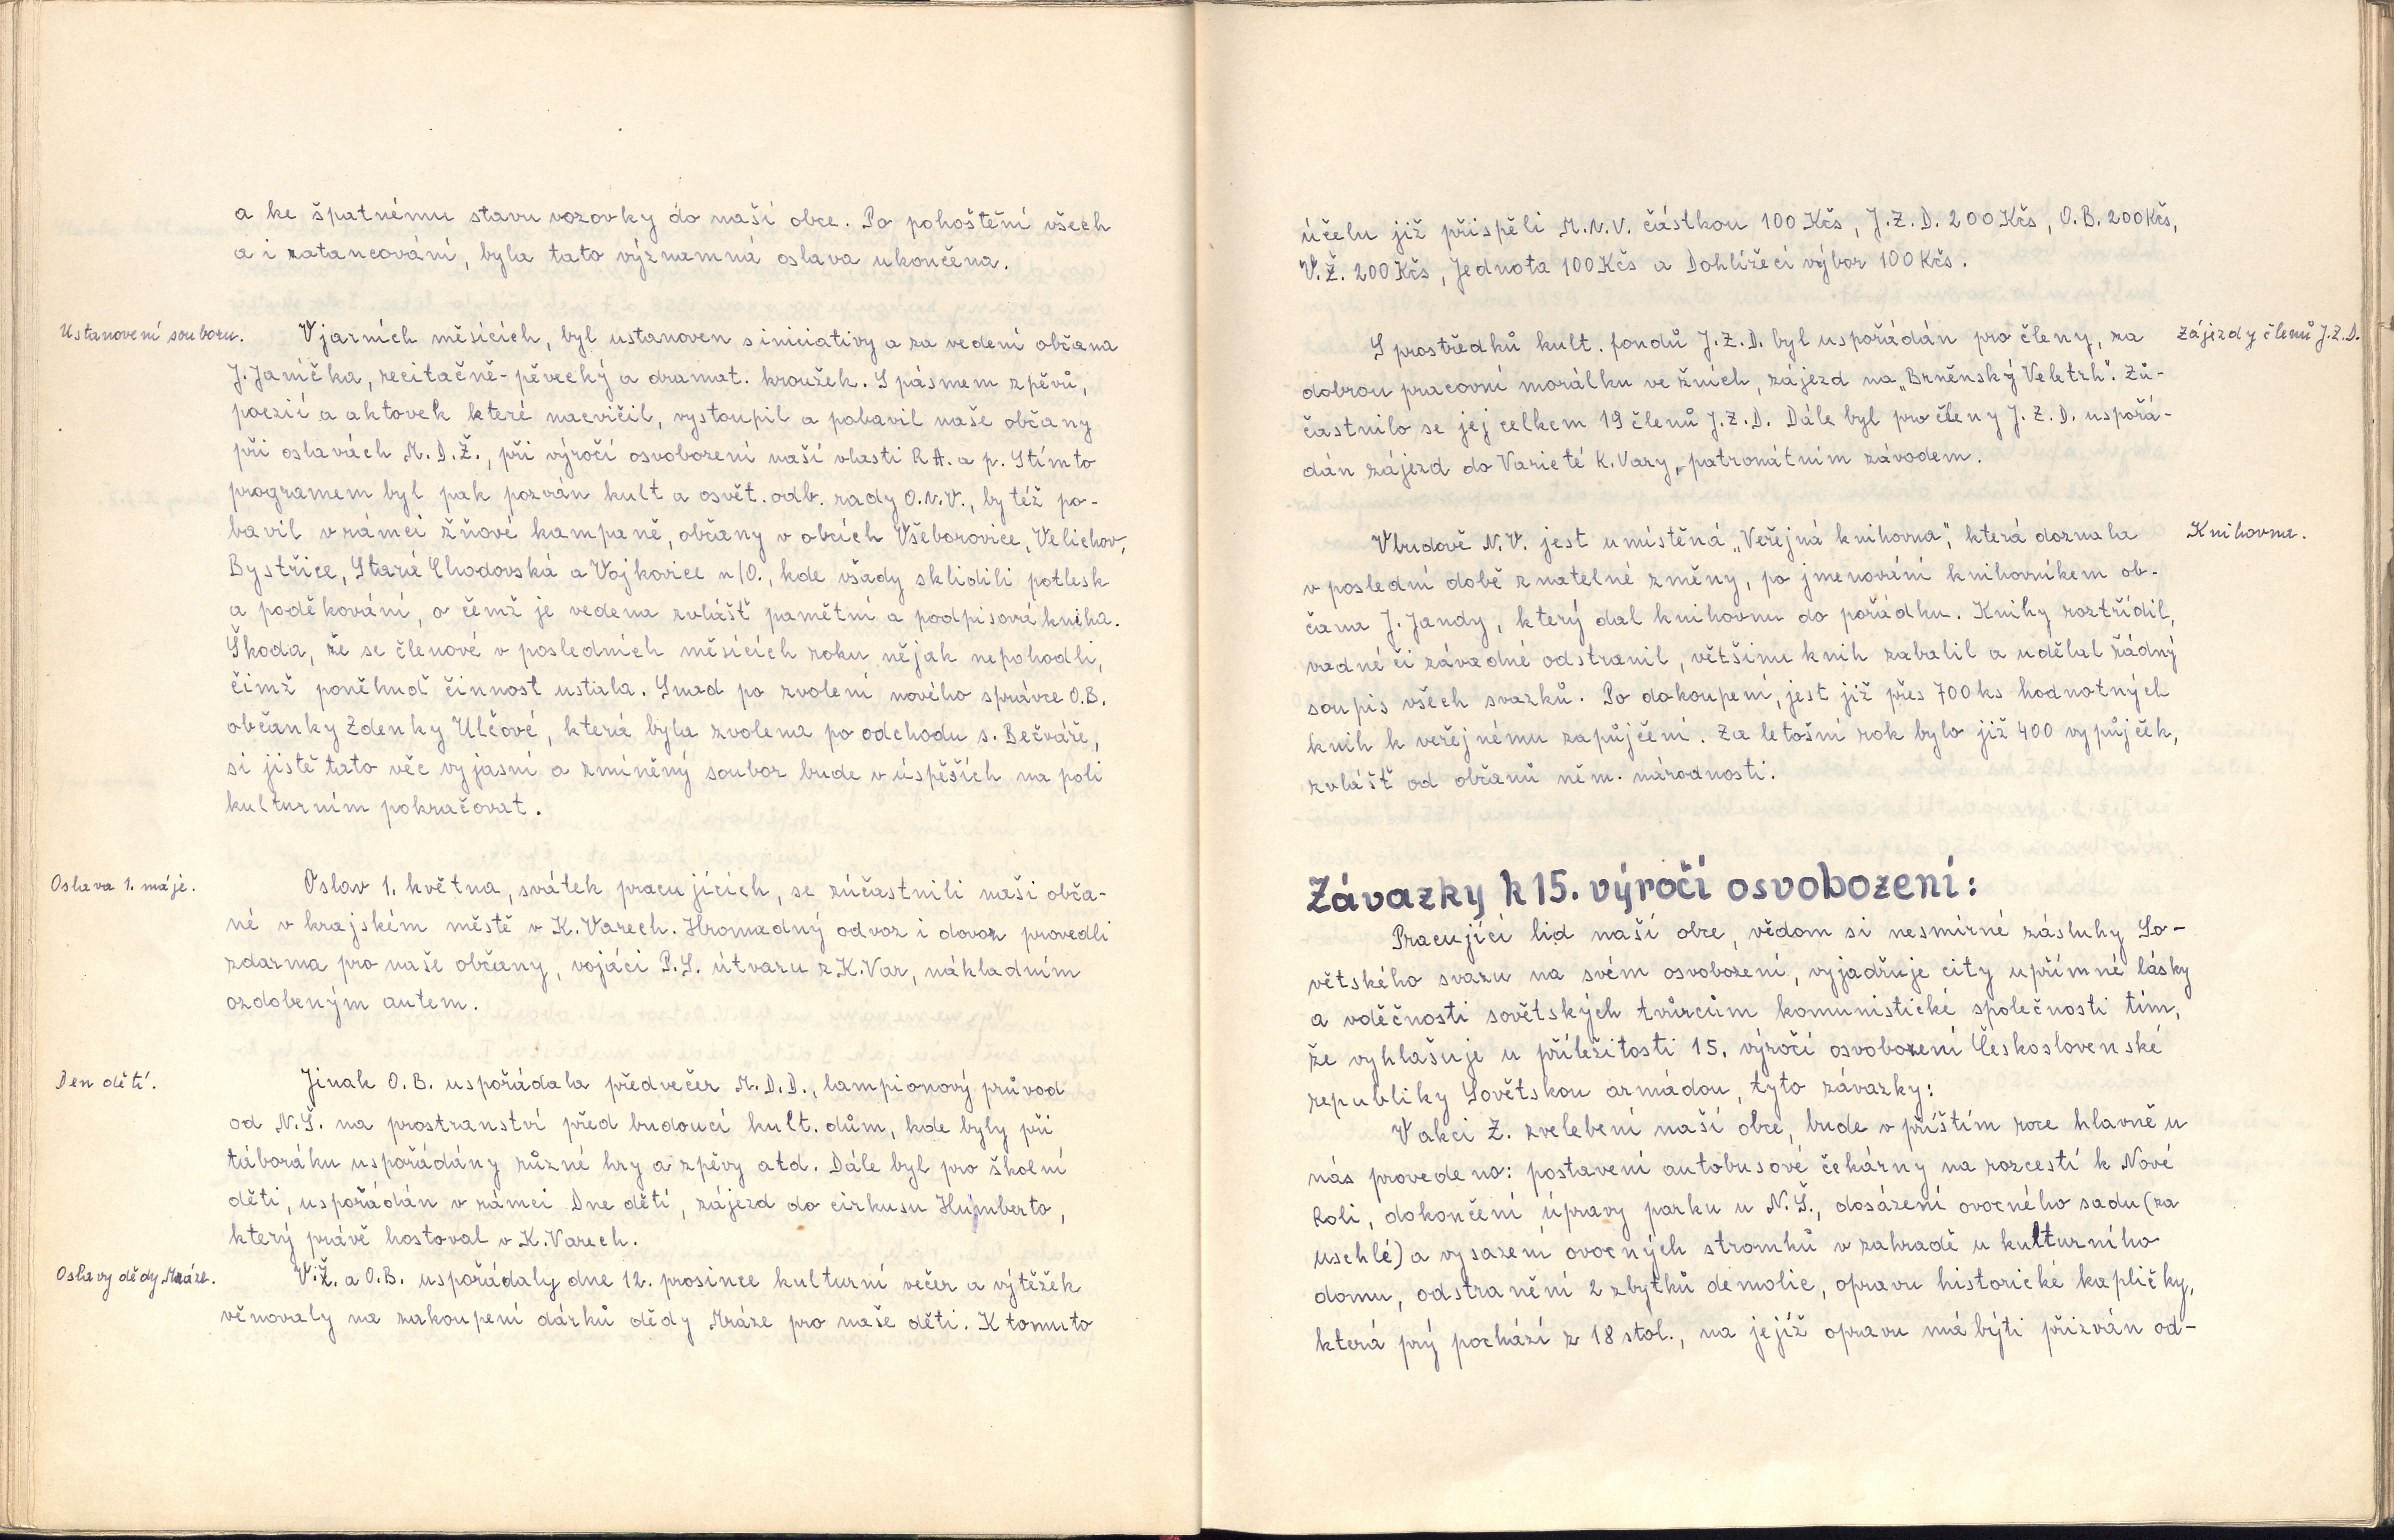 a ke špatnému stavu vozovky do naší obce. Po pohoštění všech
a i zatancování, byla tato významná oslava ukončena.
Ustanovení souboru.
V jarních měsících, byl ustanoven s iniciativy a za vedení občana
J. Janíčka, recitačně-pěvecký a dramat. kroužek. S pásmem zpěvů,
poezií a aktovek které nacvičil, vystoupil a pobavil naše občany
při oslavách M.D.Ž., při výročí osvobození naší vlasti R.A. a p. S tímto
programem byl pak pozván kult a osvět. odb. rady O.N.V., by též po-
bavil v rámci žňové kampaně, občany v obcích Všeborovice, Velichov,
Bystřice, Stará Chodovská a Vojkovice n/O., kde všady sklidili potlesk
a poděkování, o čemž je vedena zvlášť pamětní a podpisová kniha.
Škoda, že se členové v posledních měsících roku nějak nepohodli,
čimž poněkud činnost ustala. Snad po zvolení nového správce O.B.
občanky Zdenky Ulčové, která byla zvolena po odchodu s. Bečváře,
si jistě tato věc vyjasní a zmíněný soubor bude v úspěších na poli
kulturním pokračovat.
Oslava 1. máje.
Oslav 1. května, svátek pracujících, se zúčastnili naši obča-
né v krajském městě v K. Varech. Hromadný odvoz i dovoz provedli
zdarma pro naše občany, vojáci P.S. útvaru z K. Var, nákladním
ozdobeným autem.
Den dětí.
Jinak O.B. uspořádala předvečer M.D.D., lampionový průvod
od N.Š. na prostranství před budoucí kult. dům, kde byly při
táboráku uspořádány různé hry a zpěvy atd. Dále byl pro školní
děti, uspořádán v rámci Dne dětí, zájezd do cirkusu Humberto,
který právě hostoval v K. Varech.
Oslavy dědy Mráze.
V.Ž. a O.B. uspořádaly dne 12. prosince kulturní večer a výtěžek
věnovaly na zakoupení dárků dědy Mráze pro naše děti. K tomuto
účelu již přispěli M.N.V. částkou 100 Kčs, J.Z.D. 200 Kčs, O.B. 200 Kčs,
V.Ž. 200 Kčs, Jednota 100 Kčs a Dohlížecí výbor 100 Kčs.
Zájezdy členů J.Z.D.
S prostředků kult. fondů J.Z.D. byl uspořádán pro členy, za
dobrou pracovní morálku ve žních, zájezd na „Brněnský Veletrh". Zů-
častnilo se jej celkem 19 členů J.Z.D. Dále byl pro členy J.Z.D. uspořá-
dán zájezd do Varieté K. Vary, patronátním závodem.
Knihovna.
V budově N.V. jest umístěná „Veřejná knihovna", která doznala
v poslední době znatelné změny, po jmenování knihovníkem ob-
čana J. Jandy, který dal knihovnu do pořádku. Knihy roztřídil,
vadné či závadné odstranil, většinu knih zabalil a udělal řádný
soupis všech svazků. Po dokoupení, jest již přes 700 ks hodnotných
knih k veřejnému zapůjčení. Za letošní rok bylo již 400 vypůjček,
zvlášť od občanů něm. národnosti.
Závazky k 15. výročí osvobození:
Pracující lid naší obce, vědom si nesmírné zásluhy So-
větského svazu na svém osvobození, vyjadřuje city upřímné lásky
a vděčnosti sovětských tvůrcům komunistické společnosti tím,
že vyhlašuje u příležitosti 15. výročí osvobození Československé
republiky Sovětskou armádou, tyto závazky:
V akci Z. zvelebení naší obce, bude v příštím roce hlavně u
nás provedeno: postavení autobusové čekárny na rozcestí k Nové
Roli, dokončení úpravy parku u N.Š., dosázení ovocného sadu (za
uschlé) a vysazení ovocných stromků v zahradě u kulturního
domu, odstranění 2 zbytků demolic, opravu historické kapličky,
která prý pochází z 18 stol., na jejíž opravu má býti přizván od-